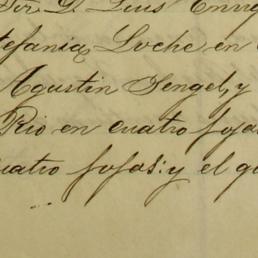 Sr. D. Luis Enriq
tefania Loche en
Agustin Sengel, y
Rio en cuatro fojas
uatro fojas: y el qu